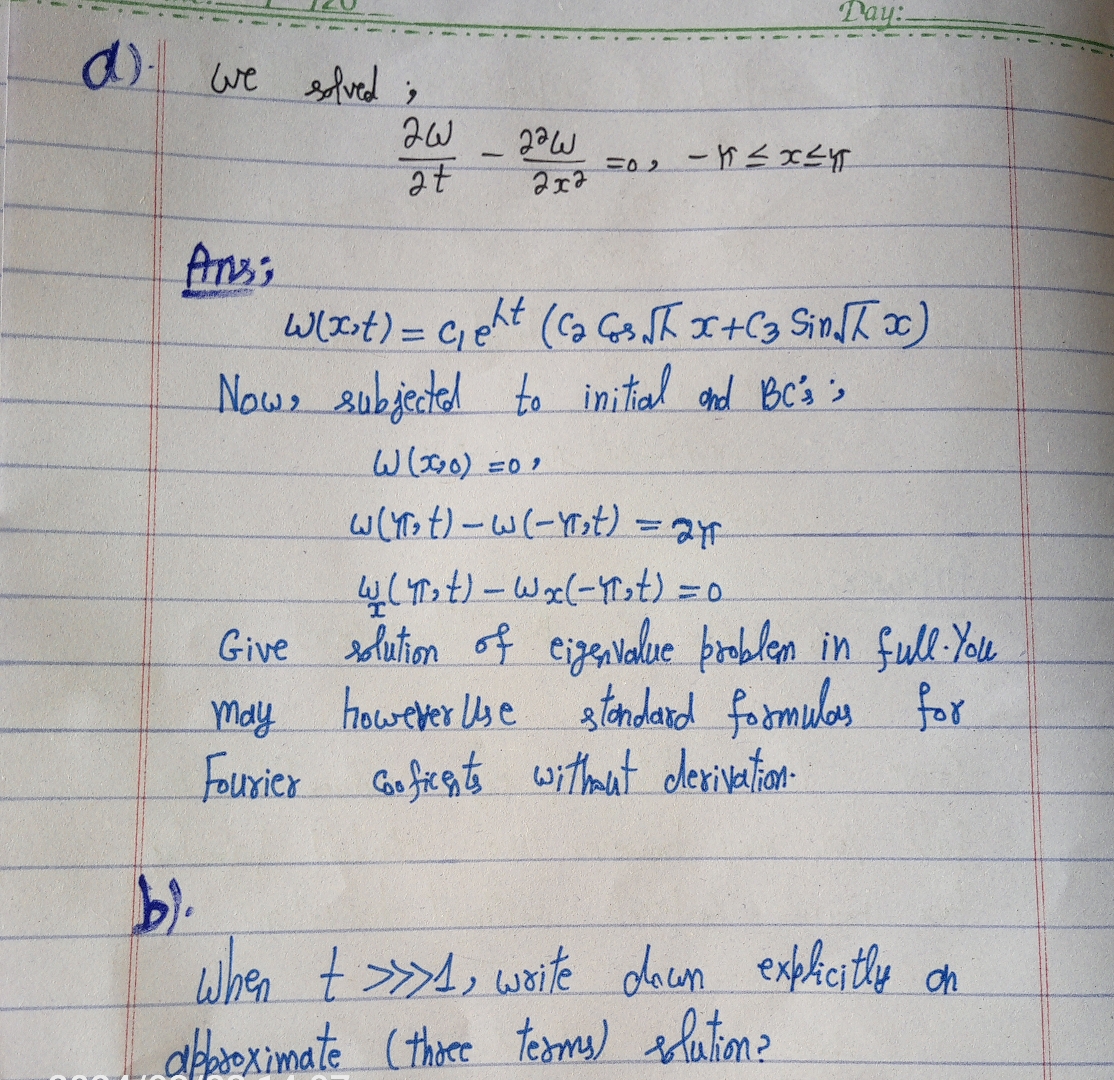 Day:
a).
We solved ;
∂W/∂t - ∂²W/∂x² = 0, -π ≤ x ≤ π
Ans;
W(x,t) = C₁ e^λt (C₂ Cos √λ x + C₃ Sin √λ x)
Now, subjected to initial and BC's ;
W(x,0) = 0,
W(π,t) - W(-π,t) = 2π
W_x(π,t) - W_x(-π,t) = 0
Give solution of eigenvalue problem in full. You
may however Use standard formulas for
Fourier Cooficents without derivation.
b).
When t >>>1, write down explicitly an
approximate (three terms) solution?